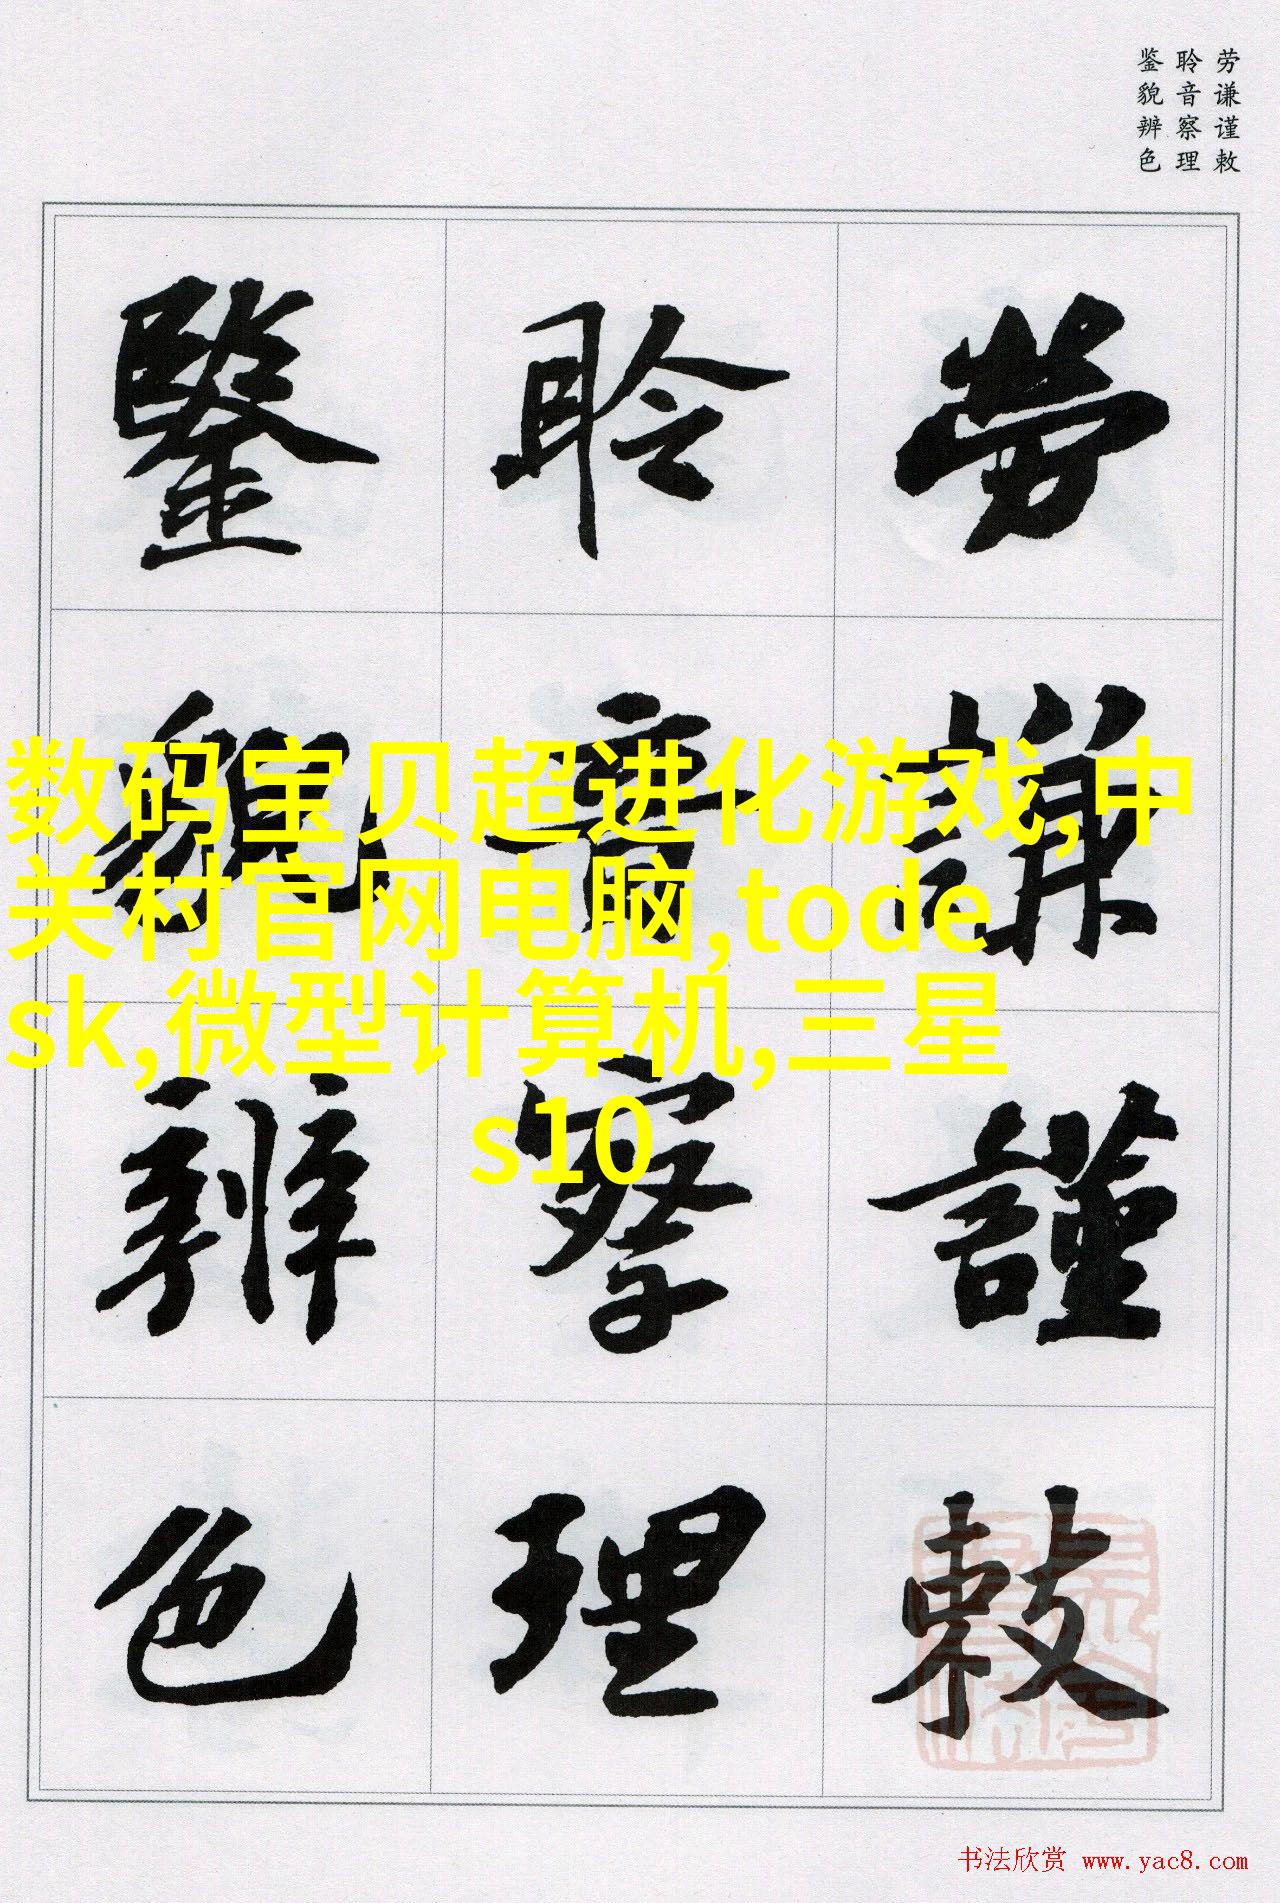 劳谦谨敕
聆音察理
鉴貌辨色
勞謙謹敕
聆音察理
鑒貌辨色
数码宝贝超进化游戏,中
关村官网电脑,tode
sk,微型计算机,三星
s10
书法欣赏 www.yac8.com